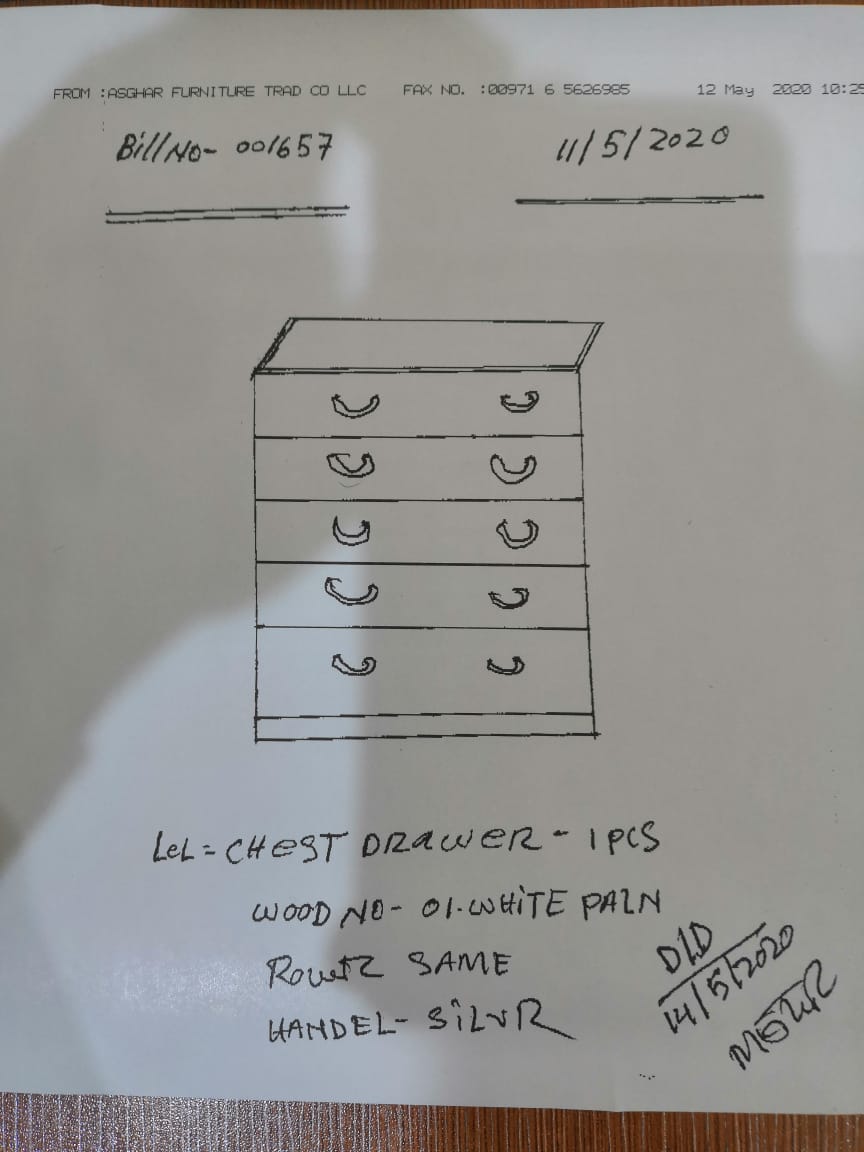 FROM :ASGHAR FURNITURE TRAD CO LLC FAX NO. :00971 6 5626985 12 May 2020 10:25
Bill NO- 001657
11/5/2020
LeL = CHEST DRAWER - 1 PCS
WOOD NO- 01.WHITE PALN
SAME
HANDEL- SILVR
D/D
14/5/2020